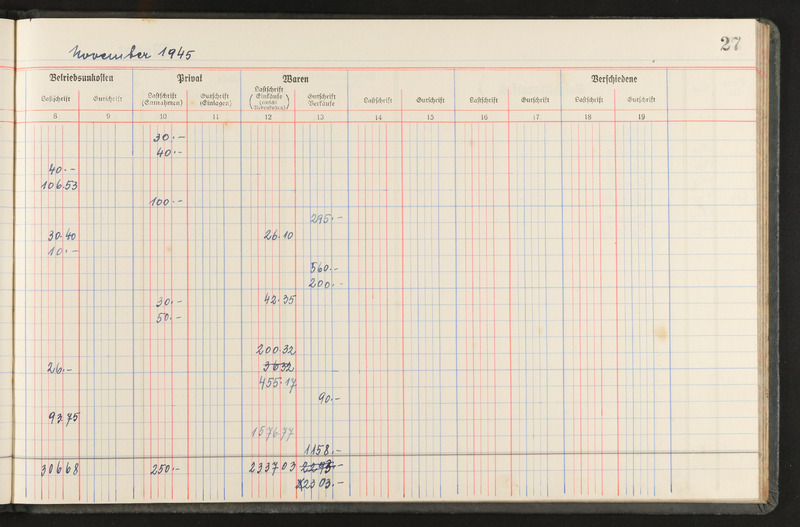 November 1945
27
Betriebsunkosten Privat Waren Verschiedene
Lastschrift Gutschrift Lastschrift (Entnahmen) Gutschrift (Einlagen) Lastschrift (Einkäufe) Gutschrift Verkäufe Lastschrift Gutschrift Lastschrift Gutschrift Lastschrift Gutschrift
8 9 10 11 12 13 14 15 16 17 18 19
30.-
40.-
40.-
106.53
100.-
295.-
30.40 26.10
10.-
560.-
200.-
30.- 42.35
50.-
200.32
26.- 3632
455.17
90.-
93.75
1576.77
1158.-
306 68 250.- 2337 03 2293.-
2303.-